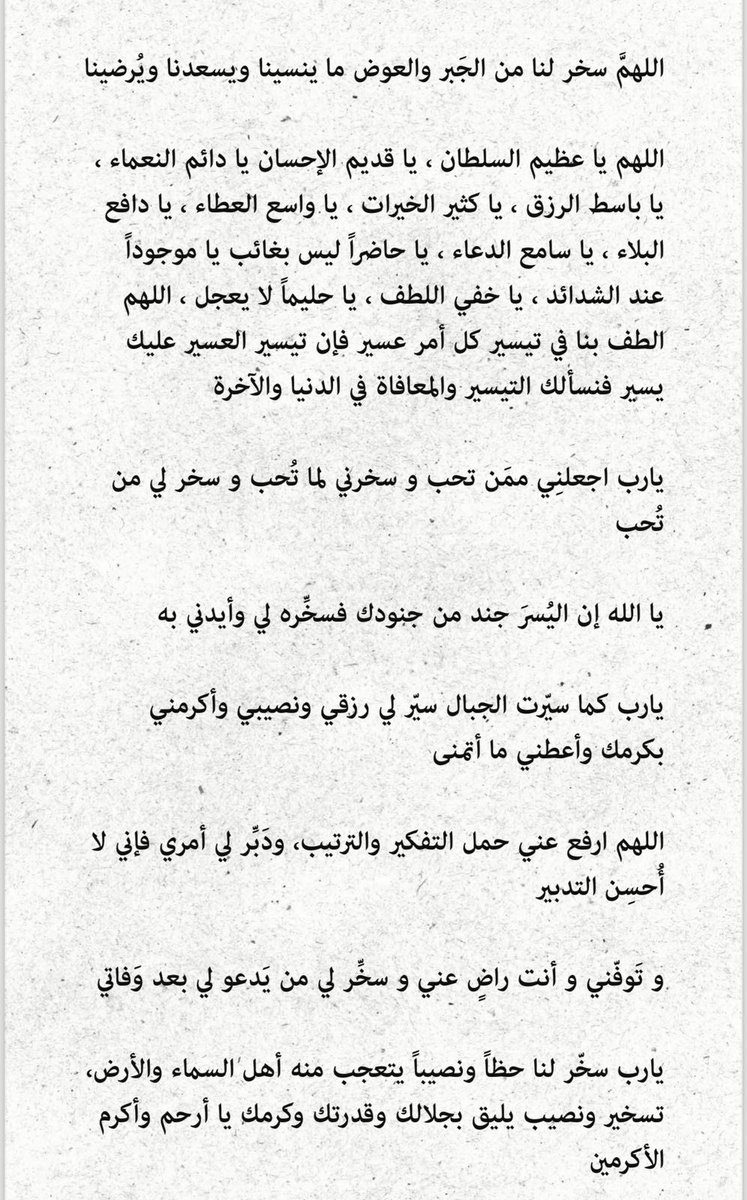 اللهمَّ سخر لنا من الجَبر والعوض ما ينسينا ويسعدنا ويُرضينا
اللهم يا عظيم السلطان ، يا قديم الإحسان يا دائم النعماء ،
يا باسط الرزق ، يا كثير الخيرات ، يا واسع العطاء ، يا دافع
البلاء ، يا سامع الدعاء ، يا حاضراً ليس بغائب يا موجوداً
عند الشدائد ، يا خفي اللطف ، يا حليماً لا يعجل ، اللهم
الطف بنا في تيسير كل أمر عسير فإن تيسير العسير عليك
يسير فنسألك التيسير والمعافاة في الدنيا والآخرة
يارب اجعلنِي ممَن تحب و سخرني لما تُحب و سخر لي من
تُحب
يا الله إن اليُسرَ جند من جنودك فسخِّره لي وأيدني به
يارب كما سيّرت الجبال سيّر لي رزقي ونصيبي وأكرمني
بكرمك وأعطني ما أتمنى
اللهم ارفع عني حمل التفكير والترتيب، ودَبِّر لي أمري فإني لا
أُحسِن التدبير
و تَوفّني و أنت راضٍ عني و سخِّر لي من يَدعو لي بعد وَفاتي
يارب سخّر لنا حظاً ونصيباً يتعجب منه أهل السماء والأرض،
تسخير ونصيب يليق بجلالك وقدرتك وكرمك يا أرحم وأكرم
الأكرمين